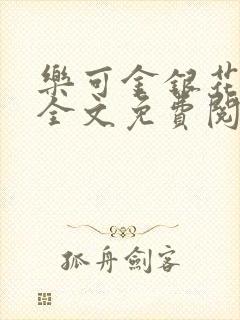 樂可金銀花
全文免費閱
孤舟劍客